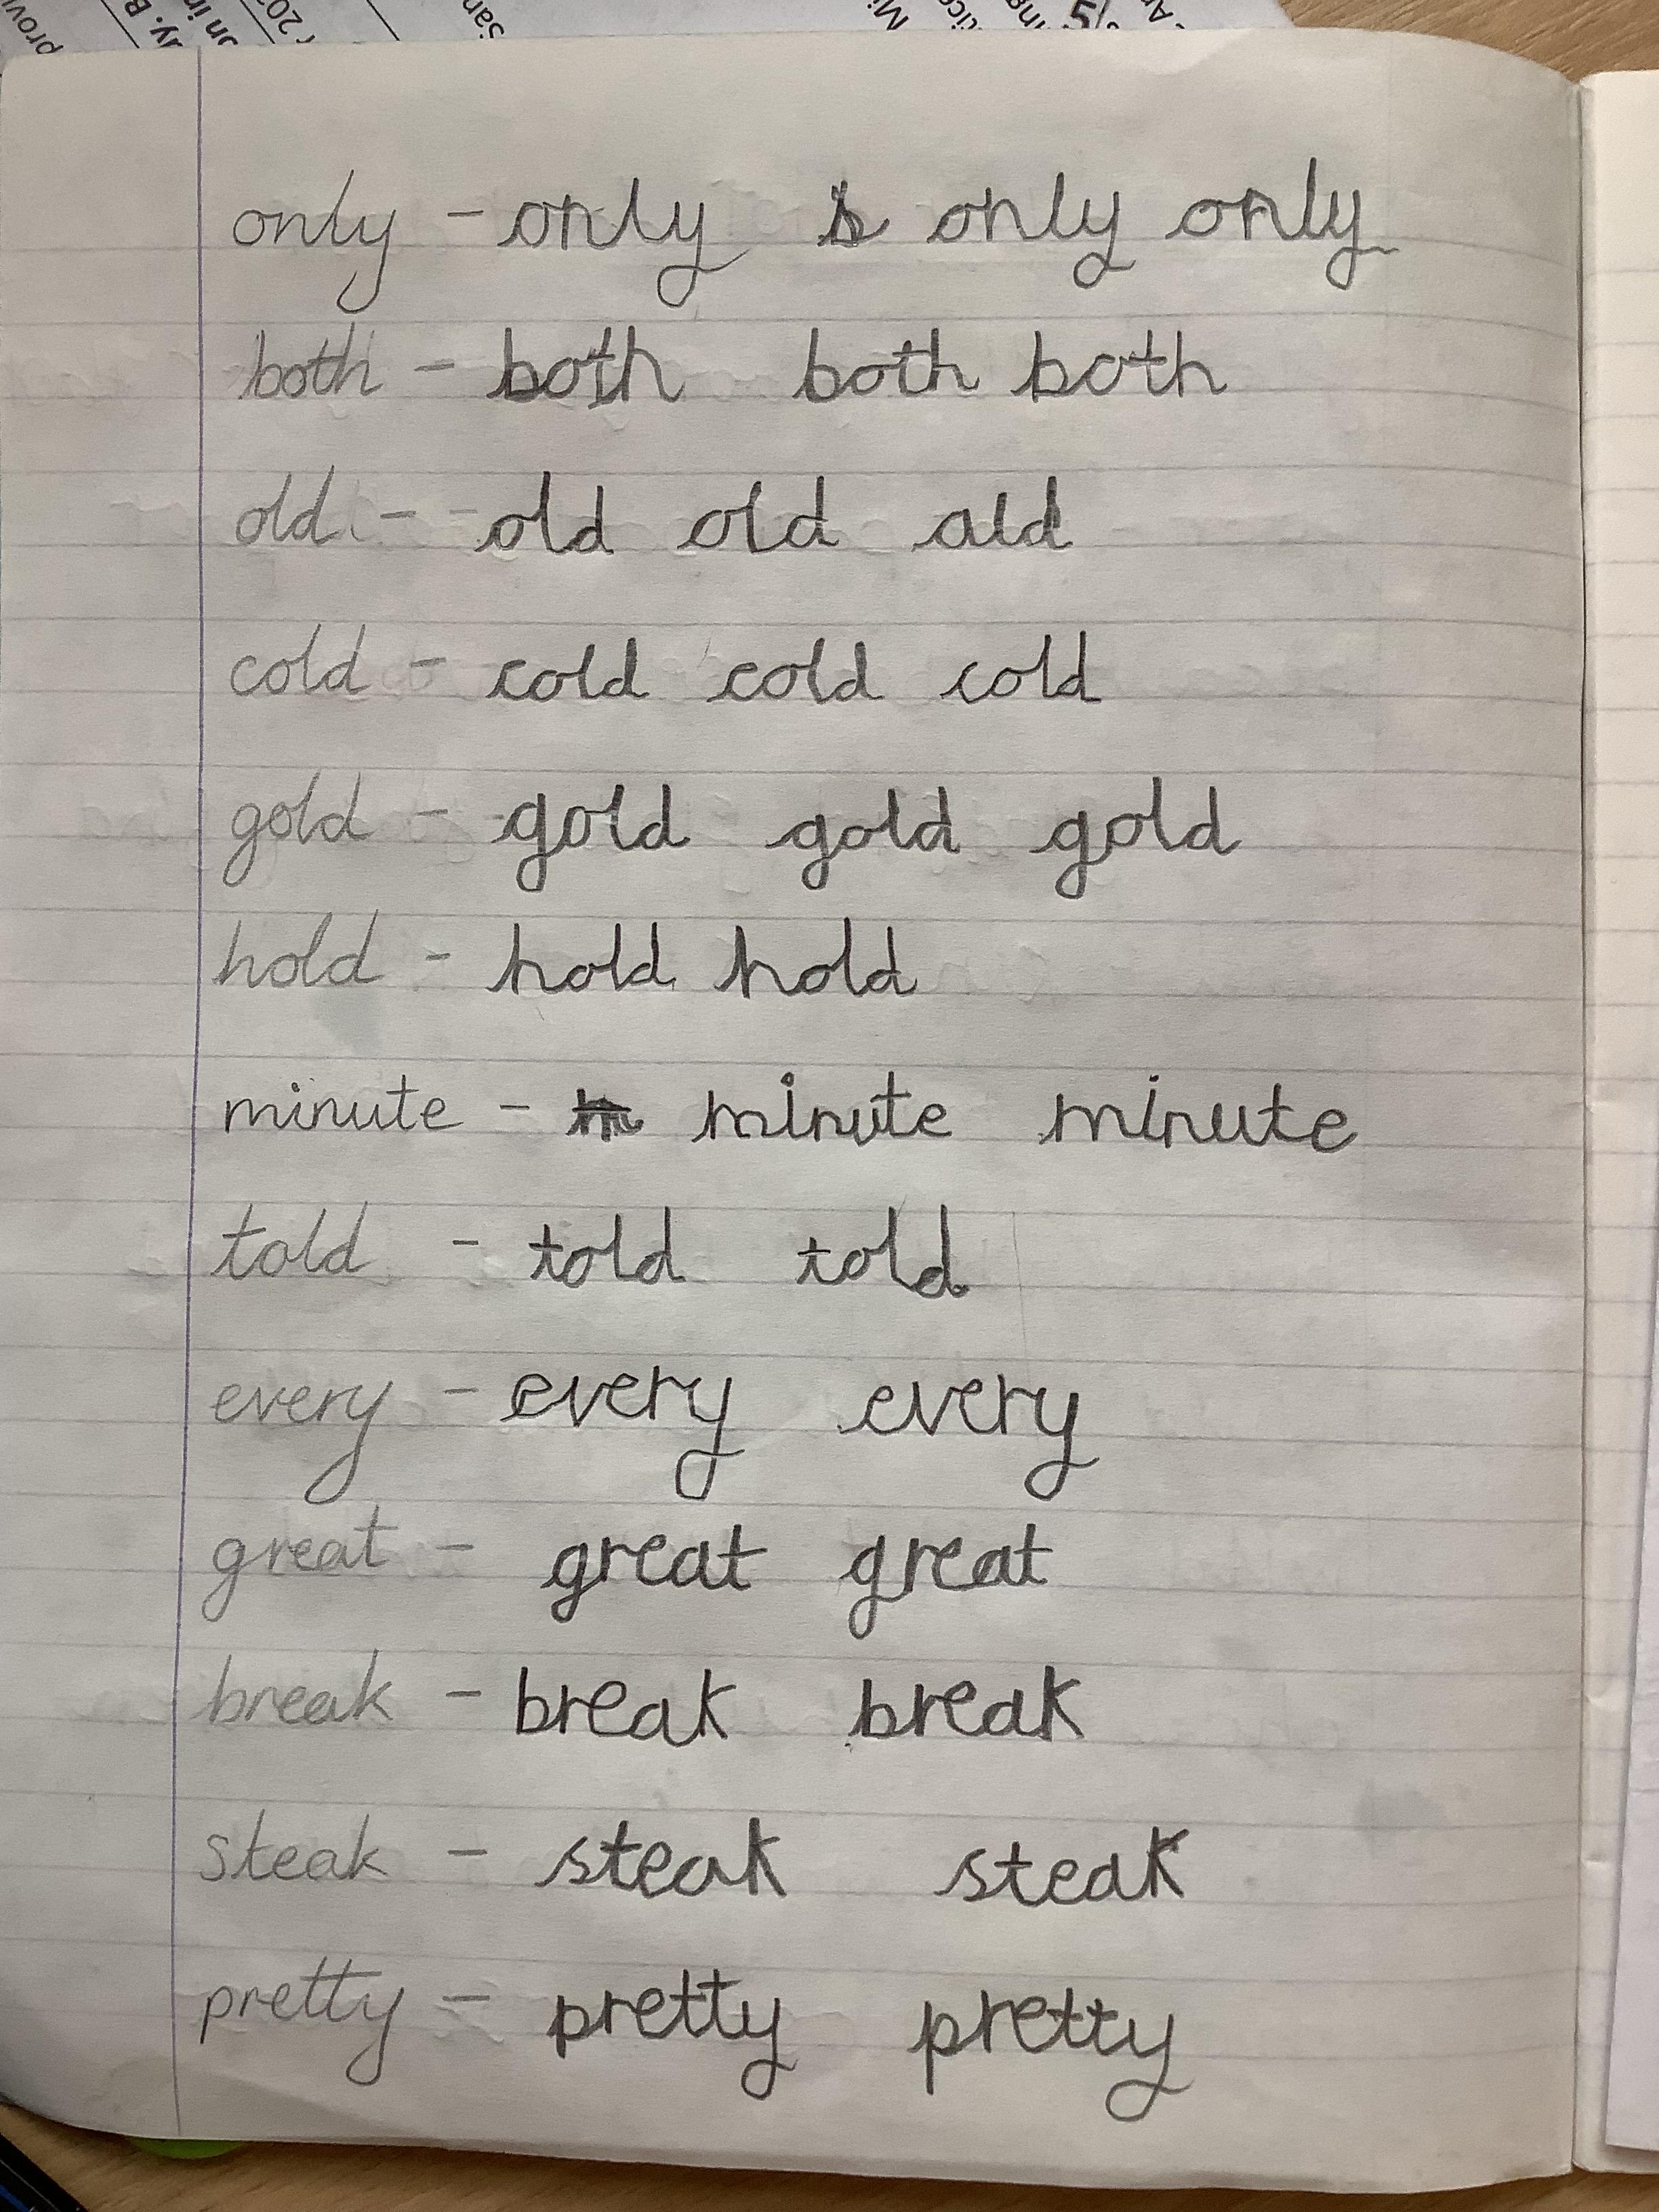 only - only only only
both - both both both
old - old old ald
cold - cold cold cold
gold - gold gold gold
hold - hold hold
minute - minute minute
told - told told
every - every every
great - great great
break - break break
steak - steak steak
pretty - pretty pretty